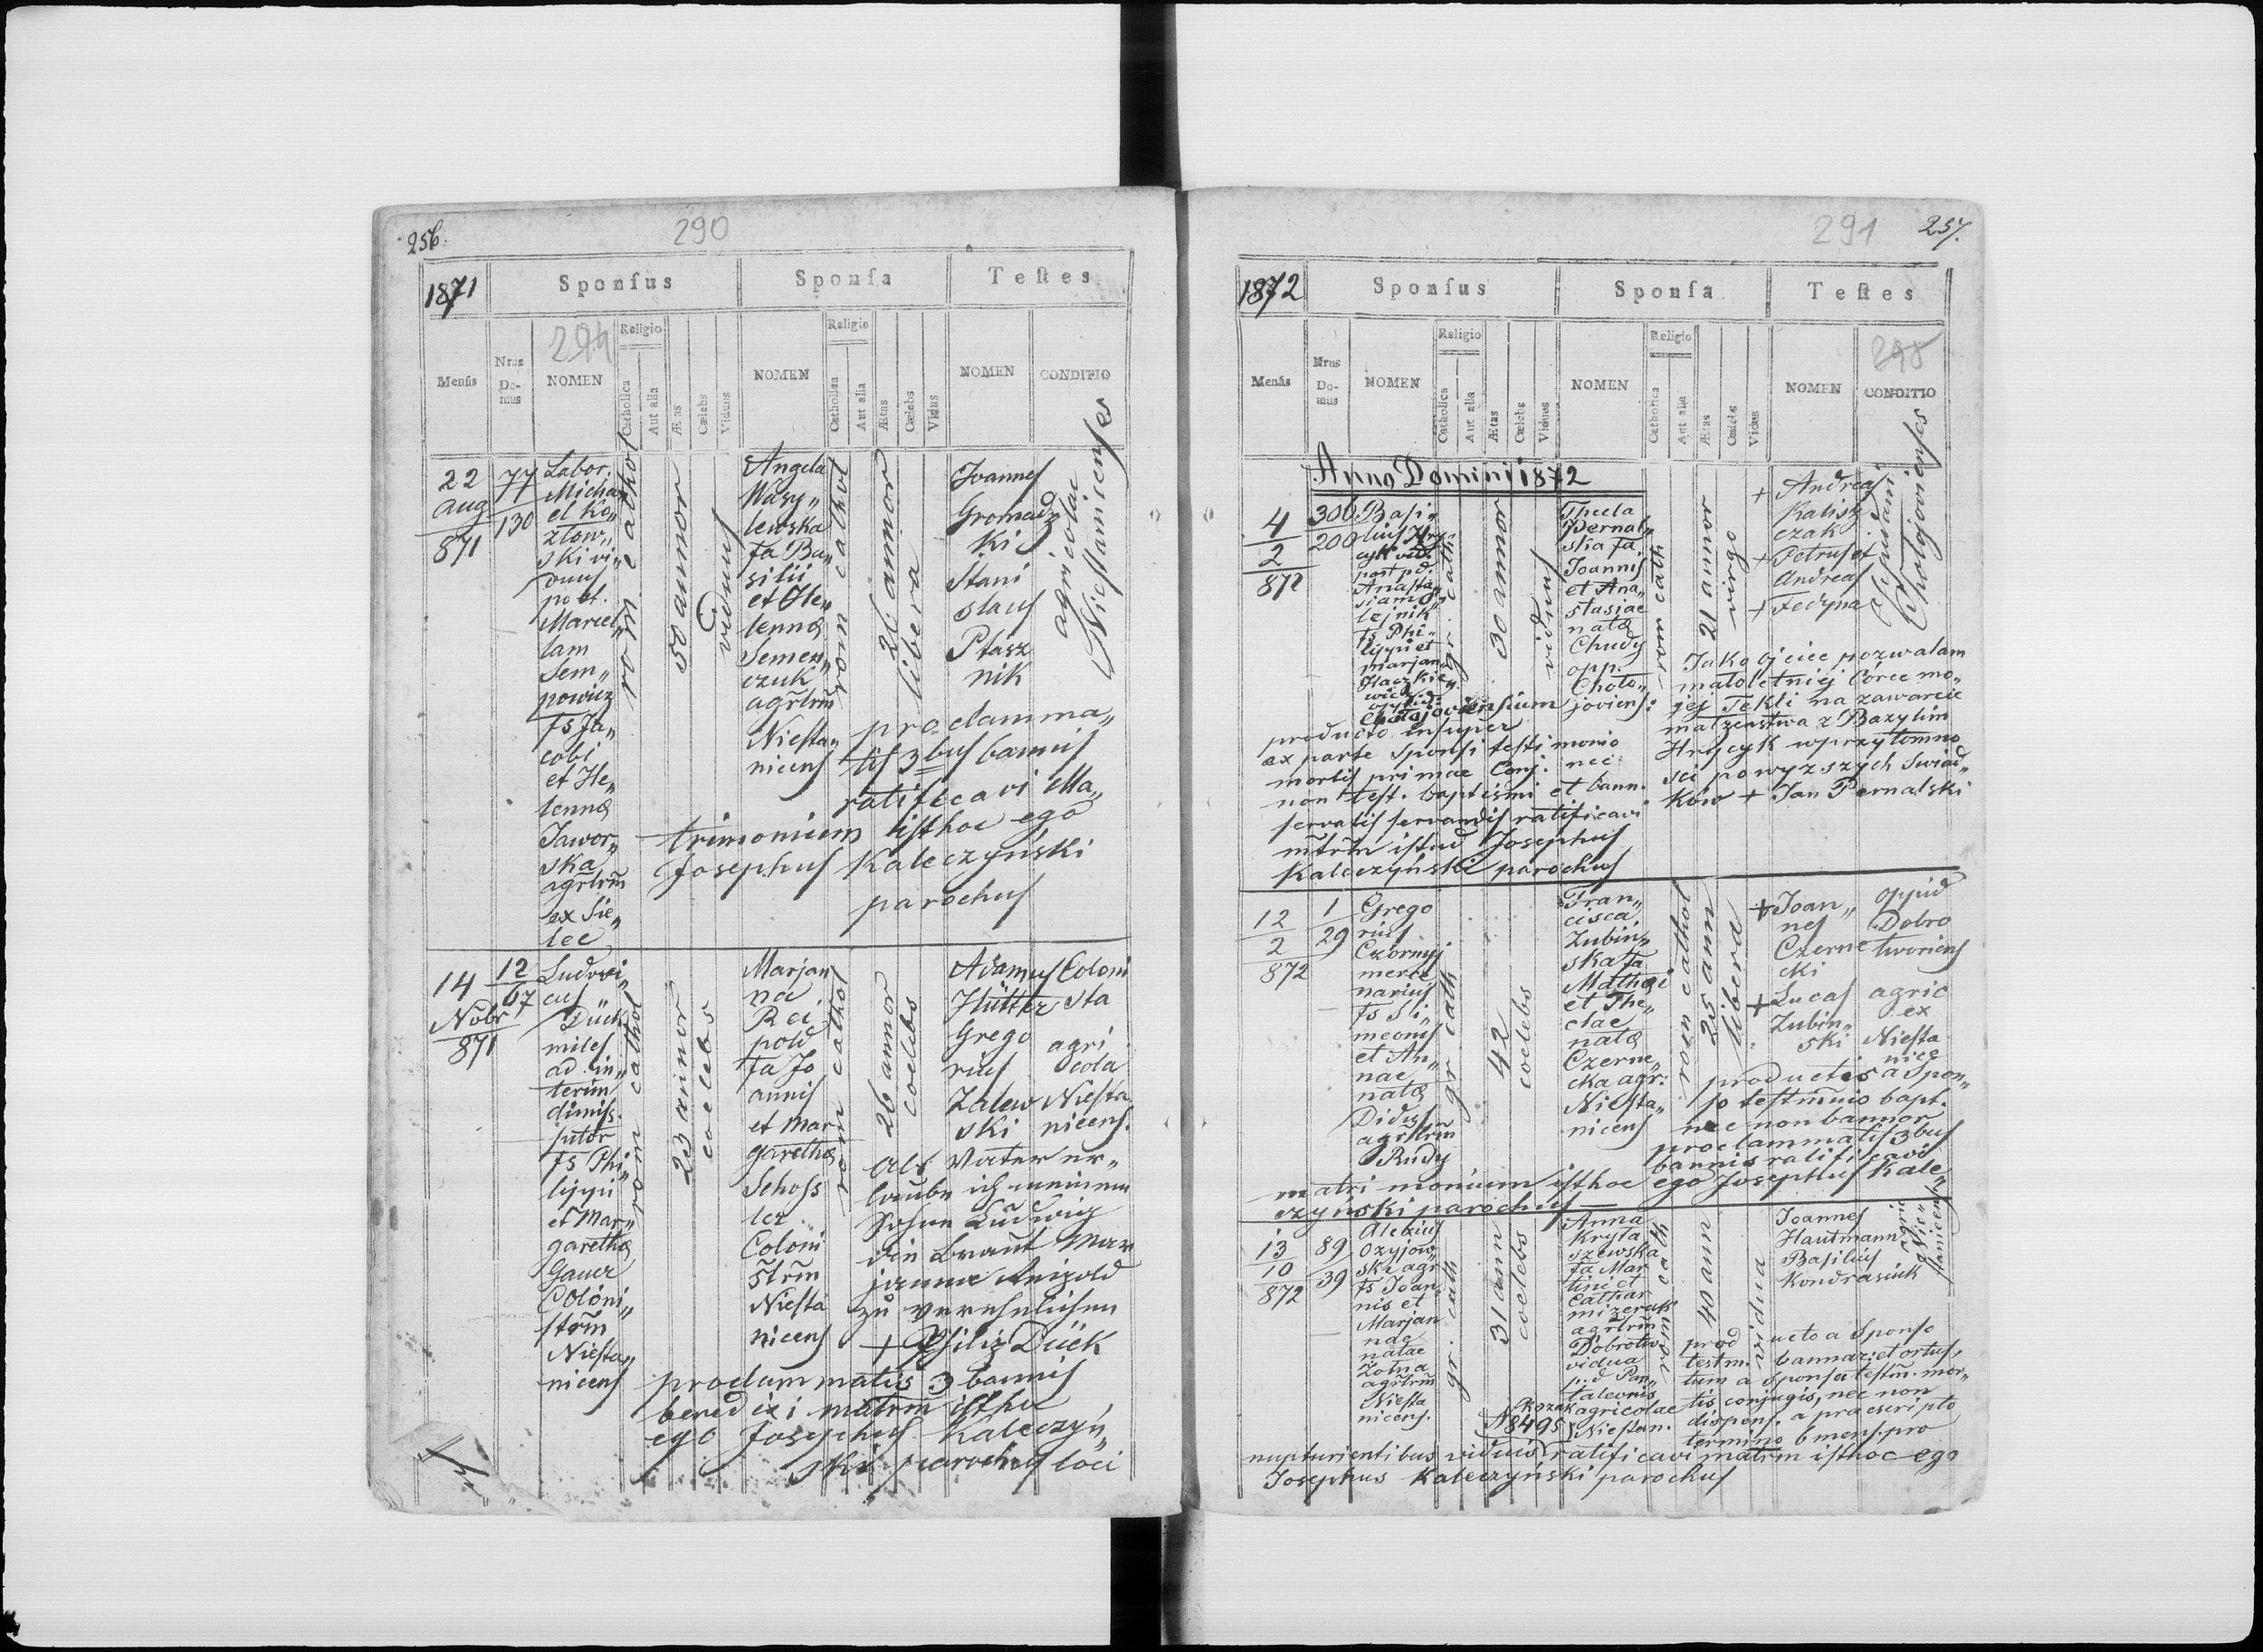 256.
290
1871
Sponſus
Sponſa
Teſtes
294
Menſis
Nrus Do-mus
NOMEN
Religio
Catholica
Aut alia
Ætas
Cœlebs
Viduus
NOMEN
Religio
Catholica
Aut alia
Ætas
Cœlebs
Vidus
NOMEN
CONDITIO
22
Aug
871
77
130
Labor.
Micha„
el Ko„
złow„
ski vi„
duus
post.
Marcel„
lam
Sem„
powicz
fs Ja„
cobi
et He„
lennæ
Jawor„
ska
agrlrm
ex Sie„
lec
rom cathol
50 annor
viduus
Angela
Wasy„
lewska
fa Ba„
silii
et He„
lennæ
Semen„
czuk
agrlrm
Niesta„
nicens
rom cathol
26 annor
libera
Joannes
Gromadz
ki
Stani
slaus
Ptasz
nik
agricolae
Niestanicenses
proclamma„
tis 3bus bannis
ratificavi Ma„
trimonium isthoc ego
Josephus Kaleczyński
parochus
14
Nobr
871
12
67
Ludovi„
cus
Dück
miles
ad in„
terim
dimiss.
sutor
fs Phi„
lippi
et Mar„
garethæ
Gauer
Coloni„
strm
Niesta„
nicens
rom cathol
23 annor
coelebs
Marjan
na
Rei
pold
fa Jo
annis
et Mar
garethæ
Schoss
ler
Coloni
strm
Niesta
nicens
rom cathol
26 annor
coelebs
Adamus
Hütter
Grego
rius
Zalew
ski
Coloni
sta
agri
cola
Niesta
nicens.
Als Vater er„
laube ich meinem
Sohne Ludwig
die Braut Mar
janna Reipold
zu verehelichen
+ Philip Dück
proclammatis 3 bannis
bened ixi matrm isthoc
ego Josephus Kaleczyń„
ski parochus loci
291
257.
1872
Sponſus
Sponſa
Teſtes
295
Menſis
Nrus Do-mus
NOMEN
Religio
Catholica
Aut alia
Ætas
Cœlebs
Viduus
NOMEN
Religio
Catholica
Aut alia
Ætas
Cœlebs
Vidus
NOMEN
CONDITIO
Anno Domini 1872
4
2
872
306
200
Basi„
lius Hry„
cyk vid.
post pd.
Anasta„
siam O„
lejnik
fs Phi„
lippi et
Marjan
Haczkie„
wicz
oppid.
Chołojoviensium
gr. cath
30 annor
viduus
Thecla
Pernal„
ska fa
Joannis
et Ana„
stasiae
natæ
Chudy
opp.
Choło„
joviens:
rom cath
21 annor
virgo
+ Andreas
Kalisz
czak
+ Petrus et
Andreas
+ Fedyna
oppidani
Chołojovienses
producto insuper
ex parte Sponsi testimonio
mortis primae Conj. nec
non test. baptismi et bann.
servatis servandis ratificavi
mtrm istud Josephus
Kaleczyński parochus
Jako Ojciec pozwalam
małoletniej Córce mo„
jej Tekli na zawarcie
małzenstwa z Bazylim
Hrycyk w przytomno
sci powyzszych Swiad„
ków + Jan Pernalski
12
2
872
1
29
Grego
rius
Czornyj
merce
narius
fs Si„
meonis
et An„
nae
natæ
Didus
agrlrm
Rudy
gr cath
42
coelebs
Fran„
cisca
Zubin„
ska fa
Mathæi
et The„
clae
natæ
Czerne„
cka agr:
Niesta„
nicens
rom cathol
25 ann
libera
+ Joan„
nes
Czerne
cki
+ Lucas
Zubin„
ski
oppid
Dobro
tworiens
agric
ex
Niesta
nice
productis a spon„
so testimio bapt.
nec non bannor
proclammatis 3bus
bannis ratificavi
matrimonium isthoc ego Josephus Kale
szyński parochus
13
10
872
89
39
Alexius
Ozyjow„
ski agr
fs Joan„
nis et
Marjan
nae
natae
Zotna
agrlrm
Niesta
nicens.
gr. cath
31 ann
coelebs
Anna
Kryta
szewska
fa Mar
tini et
Cathar
mizerak
agrlrm
Dobrotw
vidua
p.d Pan„
taleonis
Kozak agricolae
N 8495 Niestan.
rom cath
40 ann
vidua
Joannes
Hautmann
Basilius
Kondrasiuk
agric
Nie„
stanicens„
prod ucto a Sponso
testm. bannar: et ortus,
tum a Sponsa testm. mor„
tis conjugis, nec non
dispens. a praescripto
termino 6 mens. pro
nupturientibus viduis ratificavi matrm isthoc ego
Josephus Kaleczyński parochus